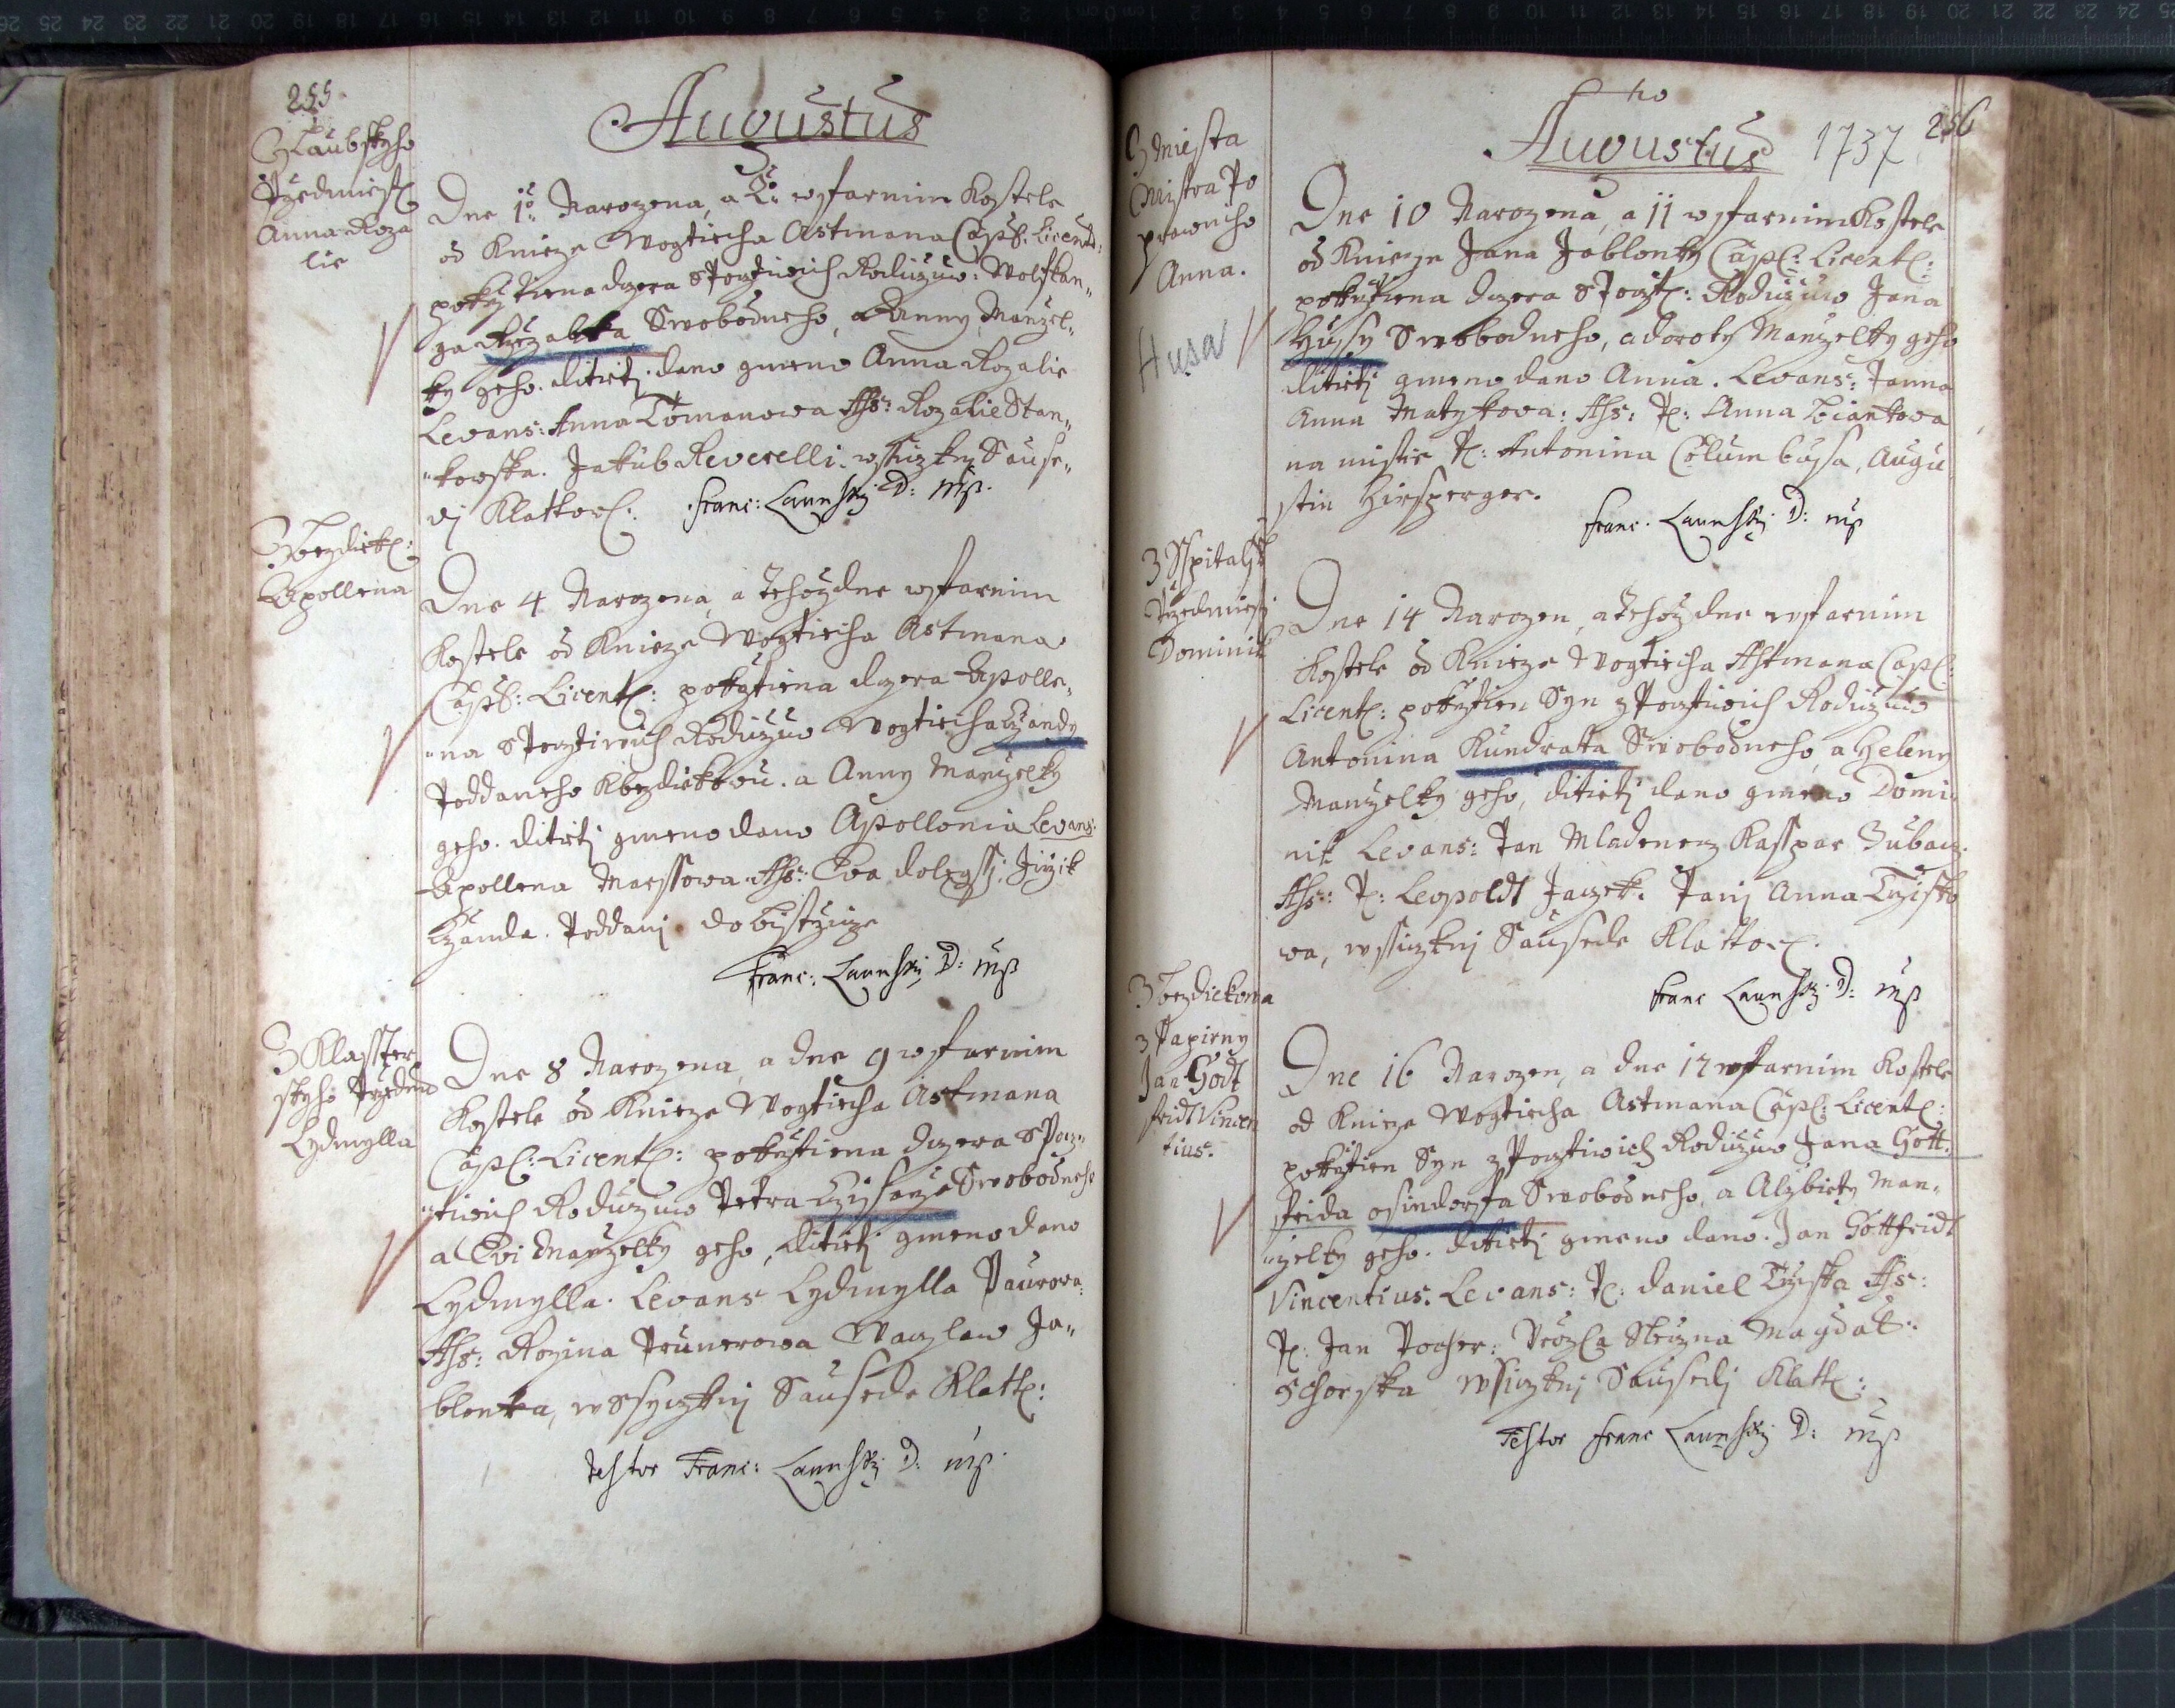 255
Augustus
Z Laubskyho
Przedmiest
Anna Roza
lie
Dne 1º Narozena, a 2º w farnim Kostele
od Knieze Wogtiecha Astmana Capl: Licent:
pokrztiena dczera s Pocztiwich Rodiczuw: Wolffan„
ga Swobodneho, a Anny Manzel„
ky geho. ditieti dano gmeno Anna Rozalie
Levans: Anna Tomanowa Ass: Rozalie Stan„
„kowska. Jakub Reverelli. wssiczkny Sause„
dj Klattow: Franc: Launsky D: mp.
Z Bezdiek:
Apollena
Dne 4 Narozena, a tehoz dne w farnim
Kostele od Knieze Wogtiecha Astmana
Capl: Licent: pokrztiena dczera Apolle„
„na s Pocztiwich Rodiczuw Wogtiecha Czandy
Poddaneho K bezdiekowu. a Anny Manzelky
geho. ditieti gmeno dano Apollonia Levans.
Apollena Marssowa Ass: Eva dolegssi, Jirzik
Czanda. Poddanj do bistrzicze
Franc: Launsky D: mp
Z Klasster
skyho Przedm
Lydmylla
Dne 8 Narozena, a dne 9 w farnim
Kostele od Knieze Wogtiecha Astmana
Capl: Licent: pokrztiena dczera s Pocz„
„tiwich Rodiczuw Petra Czisarze Swobodneho
a Evi Manzelky geho, Ditieti gmeno dano
Lydmylla. Levans Lydmylla Paurowa.
Ass: Rozina Prunerowa Waczlaw Ja„
blonka, wssyczkni Sausede Klatt:
Testor Franc: Launsky D: mp.
ho
Augustus 1737 256
Z Miesta
Mistra Po
prawneho
Anna.
Husa
Dne 10 Narozena, a 11 w farnim Kostele
od Knieze Jana Jablonky Capl: Licent:
pokrztiena dczera s Poczt: Rodiczuw Jana
Hussy Swobodneho, a doroty Manzelky geho
ditieti gmeno dano Anna. Levans: Panna
Anna Matykowa: Ass: P: Anna Biankowa
na mistie P: Antonina Columbussa, Augu
stin Hirsperger.
Franc. Launsky. D: mp
Z Sspitalsk
Przedmiesti
Dominik
Dne 14 Narozen, a tehoz dne w farnim
Kostele od Knieze Wogtiecha Astmana Capl:
Licent: pokrztien Syn z Pocztiwich Rodiczuw
Antonina Kundratta Swobodneho, a Heleny
Manzelky geho, ditieti dano gmeno Domi„
nik Levans: Pan Mladenecz Kasspar Zubacz.
Ass: P: Leopoldt Jaczek. Panj Anna Trzisko
wa, wssiczknj Sausede Klattow.
Franc Launsky. D: mp
Z bezdiekowa
z Papirny
Jan Godt
fridt Vincen
tius.
Dne 16 Narozen, a dne 17 w farnim Kostele
od Knieze Wogtiecha Astmana Capl: Licent:
pokrztien Syn z Pocztiwich Rodiczuw Jana Gott.
frida osindorffa Swobodneho, a Alzbiety Man„
„zelky geho. ditieti gmeno dano. Jan Gottfridt
Vincentius. Levans: P: Daniel Trziska Ass:
P: Jan Pocher: Magdal:
wssiczknj Sausedj Klatt:
Testor Franc Launsky D: mp